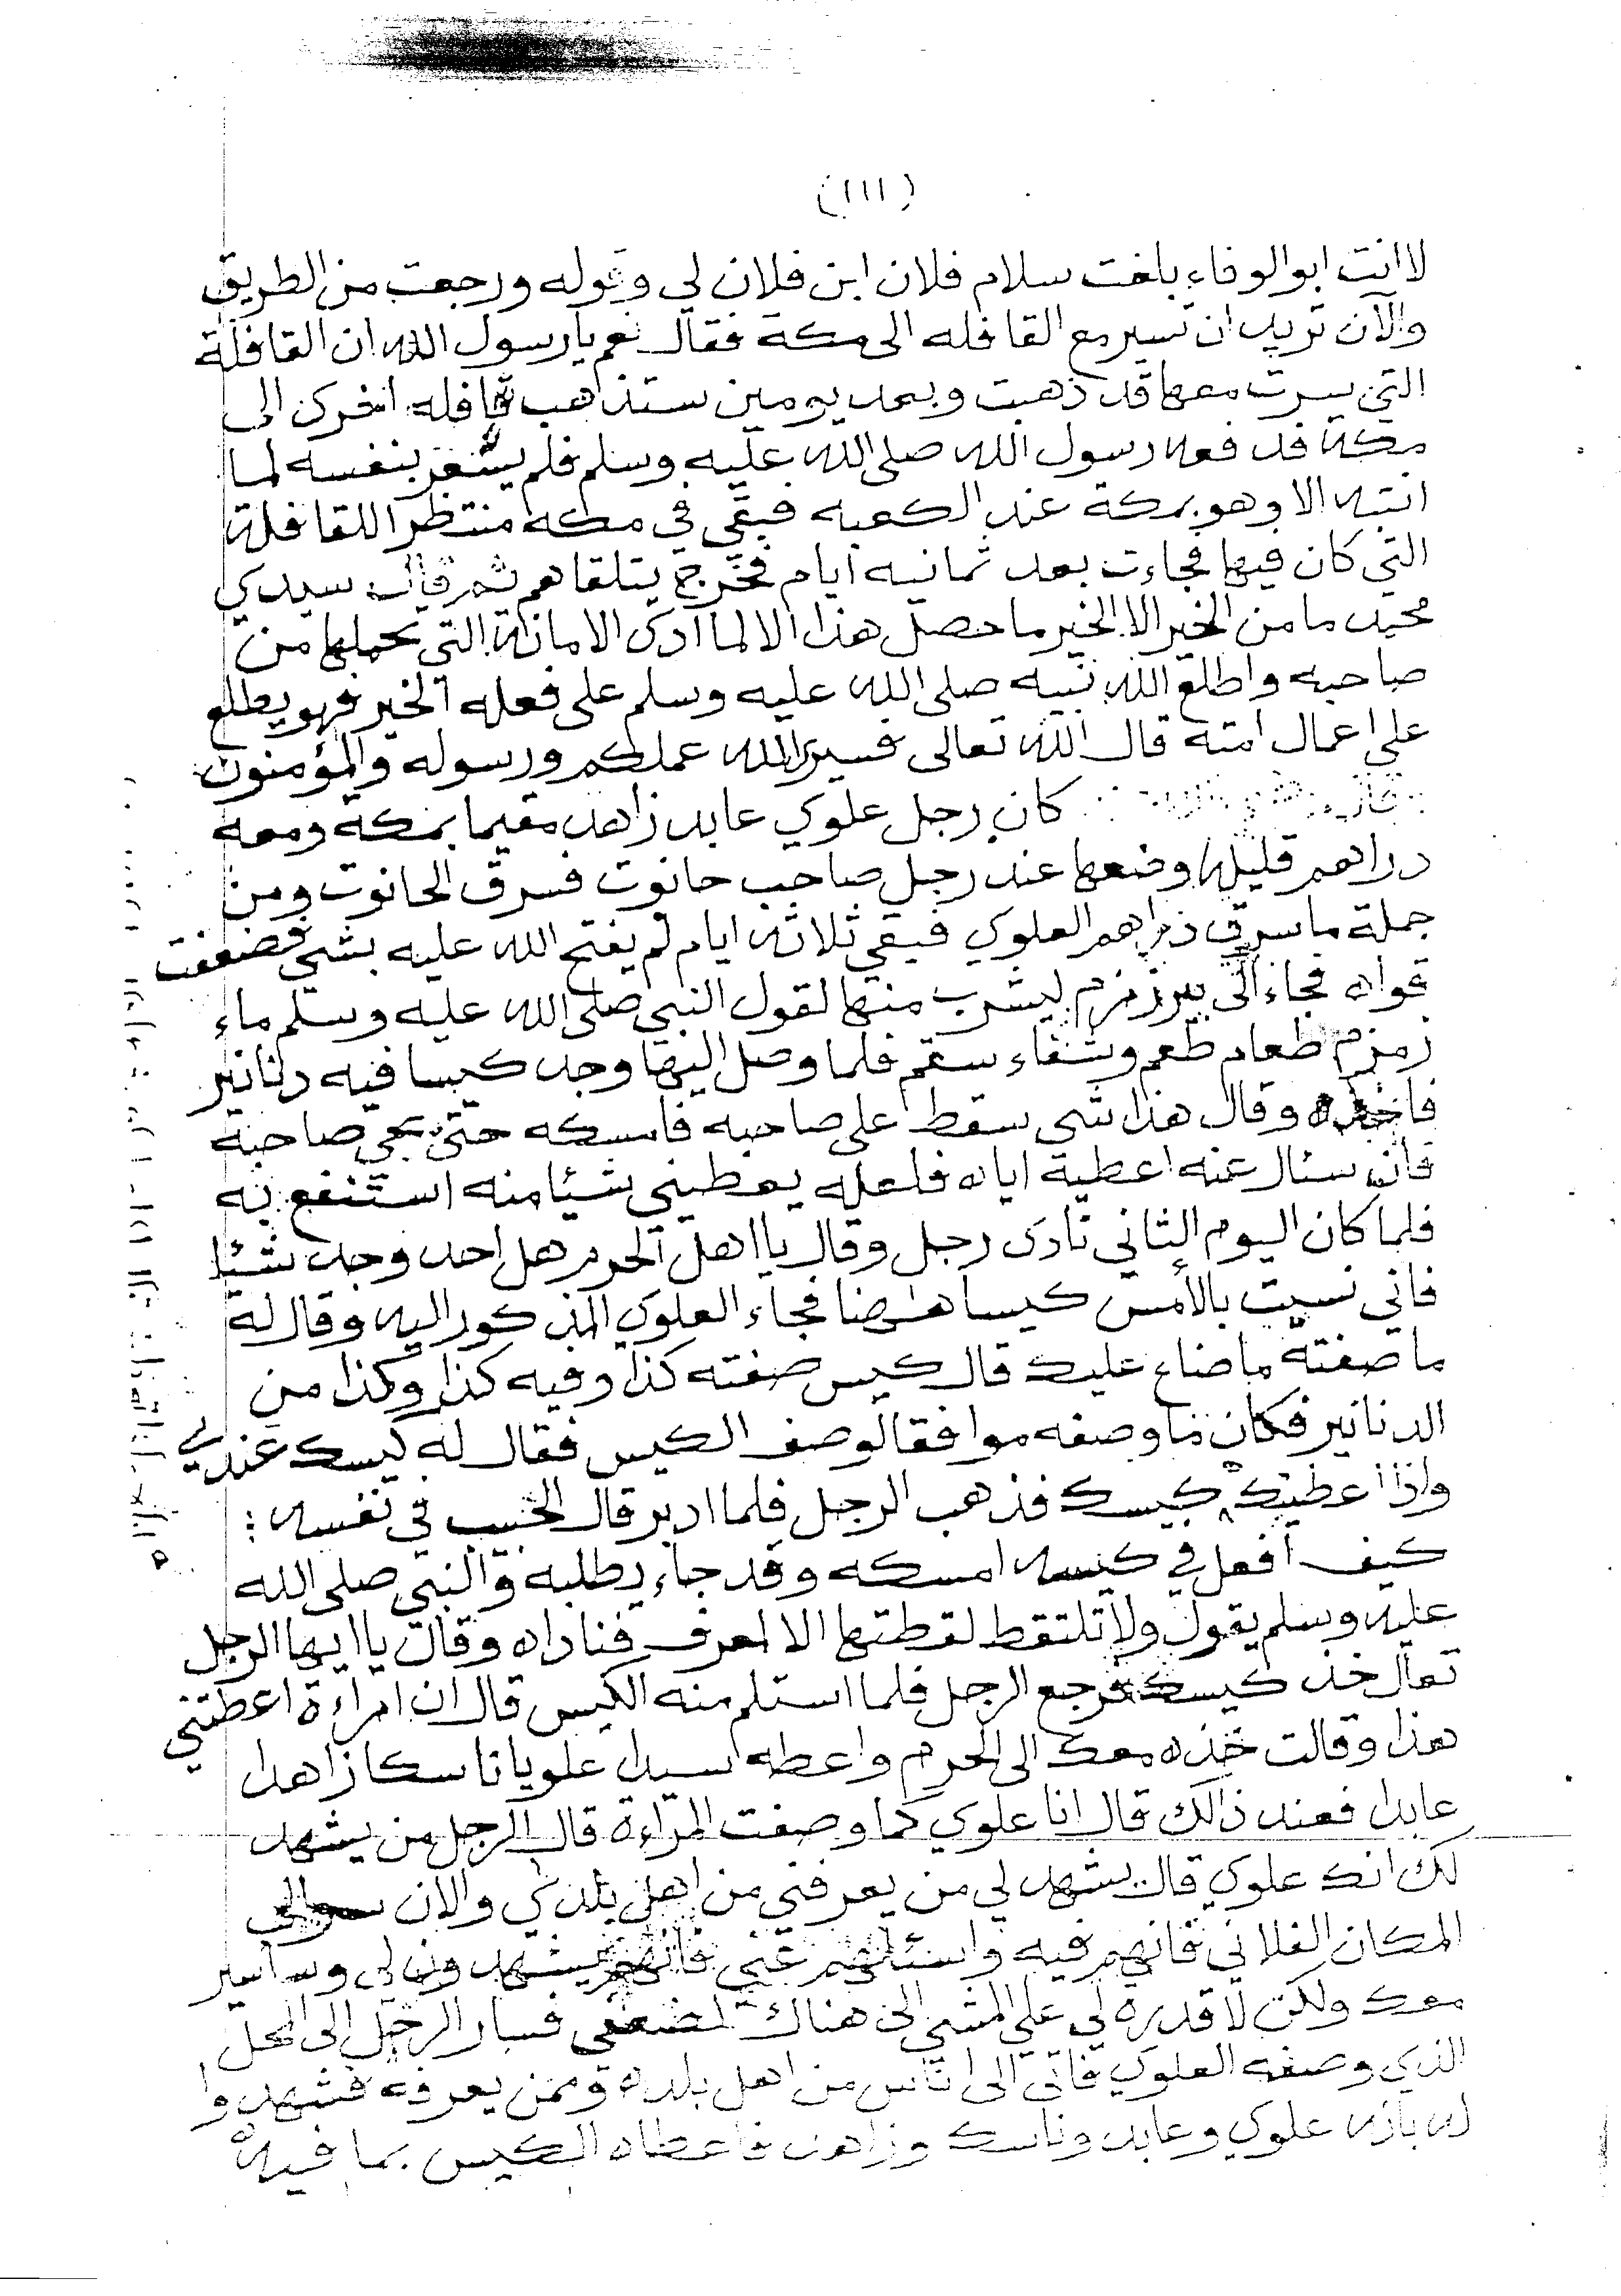 (١١١)
لا انت ابو الوفاء بلغت سلام فلان ابن فلان لي وقوله ورجعت من الطريق
والآن تريد ان تسير مع القافله الى مكة فقال نعم يا رسول الله ان القافلة
التي سرت معها قد ذهبت وبعد يومين ستذهب قافله اخرى الى
مكة فدفعه رسول الله صلى الله عليه وسلم فلم يشعر بنفسه لما
انتبه الا وهو بمكة عند الكعبه فبقي في مكه منتظرا للقافلة
التي كان فيها فجاءت بعد ثمانيه ايام فخرج يتلقاهم ثم قال سيدي
محمد ما من الخير الا الخير ما حصل هذا الا لما ادى الامانة التي تحملها من
صاحبه واطلع الله نبيه صلى الله عليه وسلم على فعله الخير فهو يطلع
على اعمال امته قال الله تعالى فسيرى الله عملكم ورسوله والمؤمنون
كان رجل علوي عابد زاهد مقيما بمكة ومعه
دراهم قليله وضعها عند رجل صاحب حانوت فسرق الحانوت ومن
جملة ما سرق دراهم العلوي فبقي ثلاثه ايام لم يفتح الله عليه بشي فضعفت
قواه فجاء الى بير زمزم ليشرب منها لقول النبي صلى الله عليه وسلم ماء
زمزم طعام طعم وشفاء سقم فلما وصل اليها وجد كيسا فيه دنانير
فاخذه وقال هذا شي سقط على صاحبه فامسكه حتى يجي صاحبه
فان سئال عنه اعطية اياه فلعله يعطيني شيئا منه استنفع به
فلما كان اليوم الثاني نادى رجل وقال يا اهل الحرم هل احد وجد شئيا
فاني نسيت بالأمس كيسا هاهنا فجاء العلوي المذكور اليه وقال له
ما صفتة ما ضاع عليك قال كيس صفته كذا وفيه كذا وكذا من
الدنانير فكان ما وصفه موافقا لوصف الكيس فقال له كيسك عندي
واذا اعطيتك كيسك فذهب الرجل فلما ادبر قال الحبيب في نفسه :
كيف افعل في كيسه امسكه وقد جاء يطلبه والنبي صلى الله
عليه وسلم يقول ولا تلتقط لقطتها الا لمعرف فناداه وقال يا ايها الرجل
تعال خذ كيسك فرجع الرجل فلما استلم منه الكيس قال ان امراءة اعطتني
هذا وقالت خذه معك الى الحرم واعطه سيدا علويا ناسكا زاهدا
عابدا فعند ذالك قال انا علوي كما وصفت المراءة قال الرجل من يشهد
لك انك علوي قال يشهد لي من يعرفني من اهل بلدي والان سر الى
المكان الفلاني فانهم فيه واسئالهم عني فانهم يشهدون لي وساسير
معك ولكن لا قدره لي على المشي الى هناك لضعفي فسار الرجل الى المحل
الذي وصفه العلوي فاتى الى اناس من اهل بلده وممن يعرفه فشهدوا
له بانه علوي وعابد وناسك وزاهد فاعطاه الكيس بما فيه